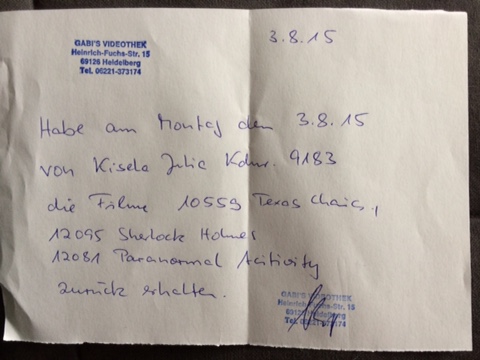 GABI'S VIDEOTHEK
Heinrich-Fuchs-Str. 15
69126 Heidelberg
Tel. 06221-373174
3.8.15
Habe am Montag den 3.8.15
von Kisela Julia Kdnr. 9183
die Filme 10559 Texas Chains.,
12095 Sherlock Holmes
12081 Paranormal Acitivity
zurück erhalten.
GABI'S VIDEOTHEK
Heinrich-Fuchs-Str. 15
69126 Heidelberg
Tel. 06221-373174